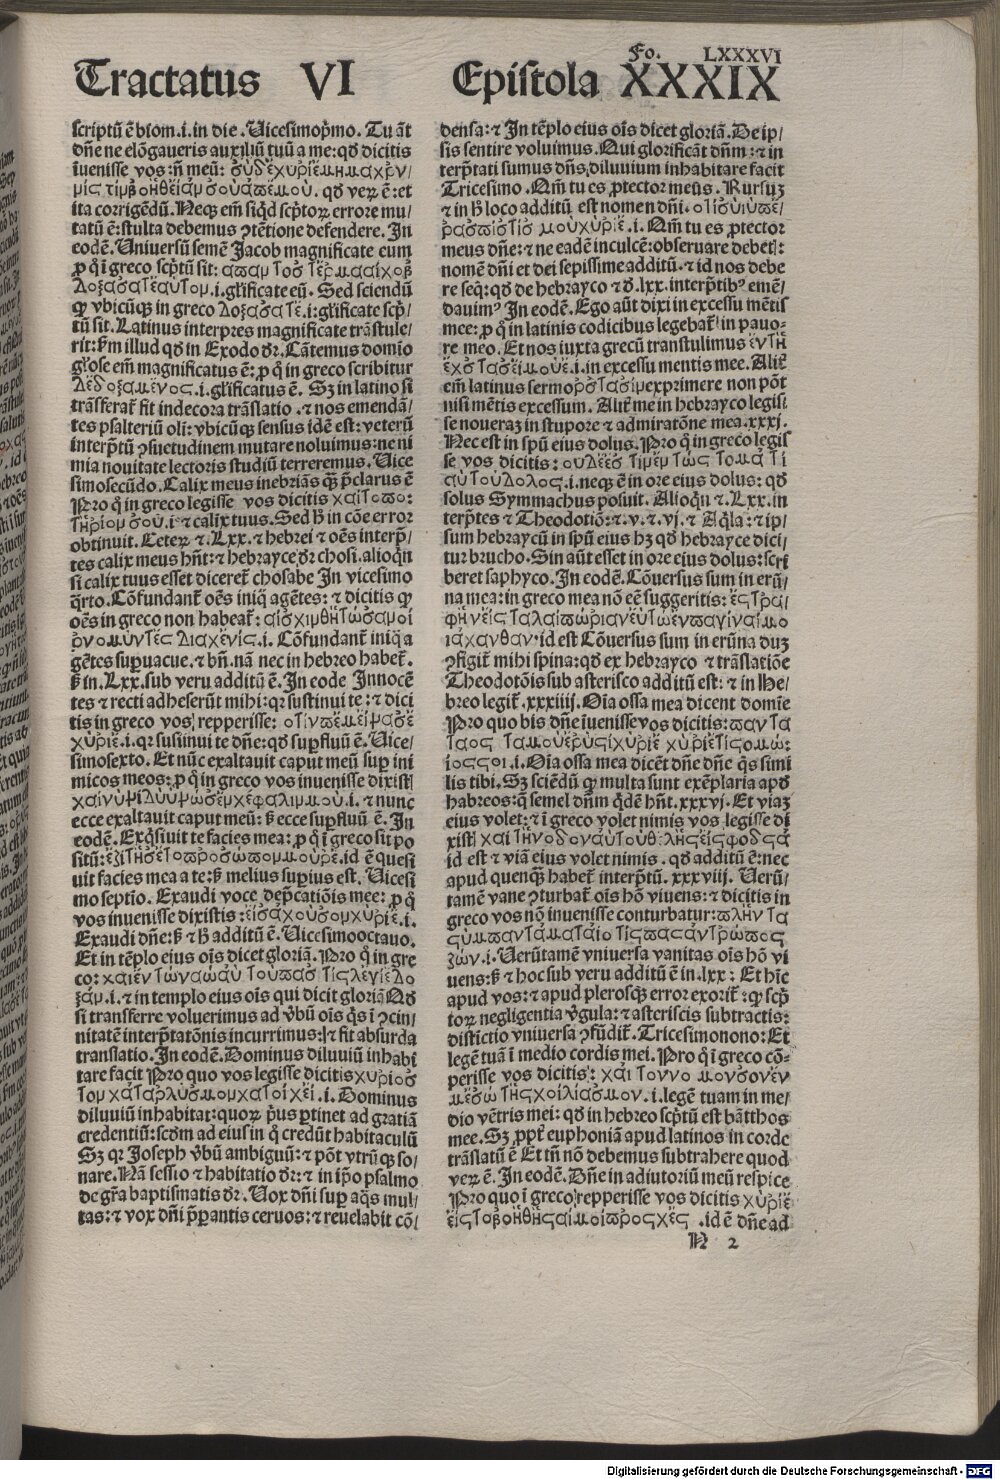 Fo. LXXXVI
Tractatus VI Epistola XXXIX
scriptū ē biom .i. in die . Uicesimop̄mo. Tu āt
dn̄e ne elōgaueris auxiliū tuū a me: qd̄ dicitis
īuenisse vos: n̄ meū:
qd̄ veꝝ ē: et
ita corrigēdū. Neqꝫ em̄ siqͥd scp̄toꝝ errore mu/
tatū ē: stulta debemus ꝯtētione defendere. In
eodē. Uniuersū semē Jacob magnificate eum
ꝓ qͦ ī greco scp̄tū sit:
.i. gl̓ificate eū. Sed sciendū
ꝙ vbicūqꝫ in greco δοξασατε .i: gl̓ificate scp̄/
tū sit. Latinus interpres magnificate trāstule/
rit: ẜm illud qd̄ in Exodo dr̄. Cātemus domīo
gl̓ose em̄ magnificatus ē: ꝓ qͦ in greco scribitur
δεδοξαμενος .i. gl̓ificatus ē. Sꝫ in latino si
trāsferat̄ fit indecora trāslatio . ⁊ nos emendā/
tes psalteriū oli: vbicūqꝫ sensus idē est: veterū
interp̄tū ꝯsuetudinem mutare noluimus: ne ni
mia nouitate lectoris studiū terreremus. Uice
simosecūdo. Calix meus inebriās qͣꝫ p̄clarus ē
Pro qͦ in greco legisse vos dicitis
.i. ⁊ calix tuus. Sed h̄ in cōe error
obtinuit. Ceteꝝ ⁊ .Lxx. ⁊ hebrei ⁊ oēs interp̄/
tes calix meus hn̄t: ⁊ hebrayce dr̄ chosi. alioqͥn
si calix tuus esset diceret̄ chosabe In vicesimo
qͣrto. Cōfundant̄ oēs iniqͥ agētes: ⁊ dicitis ꝙ
oēs in greco non habeat̄:
.i. Cōfundant̄ iniqͣ a
gētes suꝑuacue. ⁊ bn̄. nā nec in hebreo habet̄.
ẜ in .Lxx. sub veru additū ē. In eode Innocē
tes ⁊ recti adheserūt mihi: qr sustinui te: ⁊ dici
tis in greco vos repperisse:
.i. qr susiinui te dn̄e: qd̄ suꝑfluū ē. Uice/
simosexto. Et nūc exaltauit caput meū suꝑ ini
micos meos: ꝓ qͦ in greco vos inuenisse dixist̄
.i. ⁊ nunc
ecce exaltauit caput meū: ẜ ecce suꝑfluū ē. In
eodē. Exqͥsiuit te facies mea: ꝓ qͦ ī greco sit po
sitū: id ē quesi
uit facies mea a te: ẜ melius suꝑius est. Uicesi
mo septio. Exaudi voce dep̄catiōis mee: ꝓ qͦ
vos inuenisse dixistis: .i.
Exaudi dn̄e: ẜ ⁊ h̄ additū ē. Uicesimooctauo.
Et in tēplo eius oīs dicet gloriā. Pro qͦ in gre
co:
.i. ⁊ in templo eius oīs qui dicit gloriā Qd̄
si transferre voluerimus ad v̄bū oīs qͥs ī ꝯcin/
nitatē interp̄tatōnis incurrimus: ⁊ fit absurda
translatio. In eodē. Dominus diluuiū inhabi
tare facit Pro quo vos legisse dicitis
.i. Dominus
diluuiū inhabitat: quoꝝ p̄us ꝑtinet ad gratiā
credentiū: scd̄m ad eius in qͦ credūt habitaculū
Sꝫ qr Joseph v̄bū ambiguū: ⁊ pōt vtrūqꝫ so/
nare. Nā sessio ⁊ habitatio dr̄: ⁊ in ip̄o psalmo
de gr̄a baptismatis dr̄. Uox dn̄i suꝑ aqͣs mul/
tas: ⁊ vox dn̄i p̄ꝑantis ceruos: ⁊ reuelabit cō/
densa: ⁊ In tēplo eius oīs dicet gloriā. De ip/
sis sentire voluimus. Qui glorificāt dn̄m: ⁊ in
terp̄tati sumus dn̄s diluuium inhabitare facit
Tricesimo . Qm̄ tu es ꝓtector meus. Rursuꝫ
⁊ in h̄ loco additū est nomen dn̄i .
.i. Qm̄ tu es ꝓtector
meus dn̄e: ⁊ ne eadē inculcē: obseruare debet̄:
nomē dn̄i et dei sepissime additū . ⁊ id nos debe
re seqͥ: qd̄ de hebrayco ⁊ d̄ .lxx. interp̄tibꝰ emē/
dauimꝰ In eodē. Ego aūt dixi in excessu mētis
mee: ꝓ qͦ in latinis codicibus legebat̄ in pauo-
re meo. Et nos iuxta grecū transtulimus
.i. in excessu mentis mee. Alit̄
em̄ latinus sermo exprimere non pōt
nisi mētis excessum. Alit̄ me in hebrayco legisi
se noueraꝫ in stupore ⁊ admiratōne mea .xxxj.
Nec est in spū eius dolus. Pro qͦ in greco legis
se vos dicitis:
.i. neqꝫ ē in ore eius dolus: qd̄
solus Symmachus posuit. Alioqͥn ⁊ .Lxx. in
terp̄tes ⁊ Theodotiō: ⁊ .v. ⁊ .vj. ⁊ Aqͥla: ⁊ ip/
sum hebraycū in spū eius hꝫ qd̄ hebrayce dici/
tur brucho. Sin aūt esset in ore eius dolus: scri
beret saphyco. In eodē. Cōuersus sum in erū/
na mea: in greco mea nō eē suggeritis:
id est Cōuersus sum in erūna duꝫ
ꝯfigit̄ mihi spina: qd̄ ex hebrayco ⁊ trāslatiōe
Theodotōis sub asterisco additū est: ⁊ in He/
breo legit̄ .xxxiiij. Oīa ossa mea dicent domīe
Pro quo bis dn̄e īuenisse vos dicitis:
.i. Oīa ossa mea dicēt dn̄e dn̄e qͥs simi
lis tibi. Sꝫ sciēdū ꝙ multa sunt exēplaria apd̄
habreos: qͣ semel dn̄m qͥdē hn̄t .xxxvj. Et viaꝫ
eius volet: ⁊ ī greco volet nimis vos legisse di
xist̄
id est ⁊ viā eius volet nimis . qd̄ additū ē: nec
apud quenqͣꝫ habet̄ interp̄tū. xxxviij. Uerū/
tamē vane ꝯturbat̄ oīs hō viuens: ⁊ dicitis in
greco vos nō inuenisse conturbatur:
.i. Uerūtamē vniuersa vanitas oīs hō vi
uens: ẜ ⁊ hoc sub veru additū ē in .lxx: Et hīc
apud vos: ⁊ apud plerosqꝫ error exorit̄: ꝙ scp̄
toꝝ negligentia v̄gula: ⁊ asteriscis subtractis:
distīctio vniuersa ꝯfūdit̄. Tricesimonono: Et
legē tuā ī medio cordis mei. Pro qͦ ī greco cō-
perisse vos dicitis:
.i. legē tuam in me/
dio vētris mei: qd̄ in hebreo scp̄tū est bāt̄thos
mee. Sꝫ ꝓpt̄ euphoniā apud latinos in corde
trāslatū ē Et tn̄ nō debemus subtrahere quod
veꝝ ē. In eodē. Dn̄e in adiutoriū meū respice
Pro quo ī greco repperisse vos dicitis
. id ē dn̄e ad
N 2
Digitalisierung gefördert durch die Deutsche Forschungsgemeinschaft - DFG